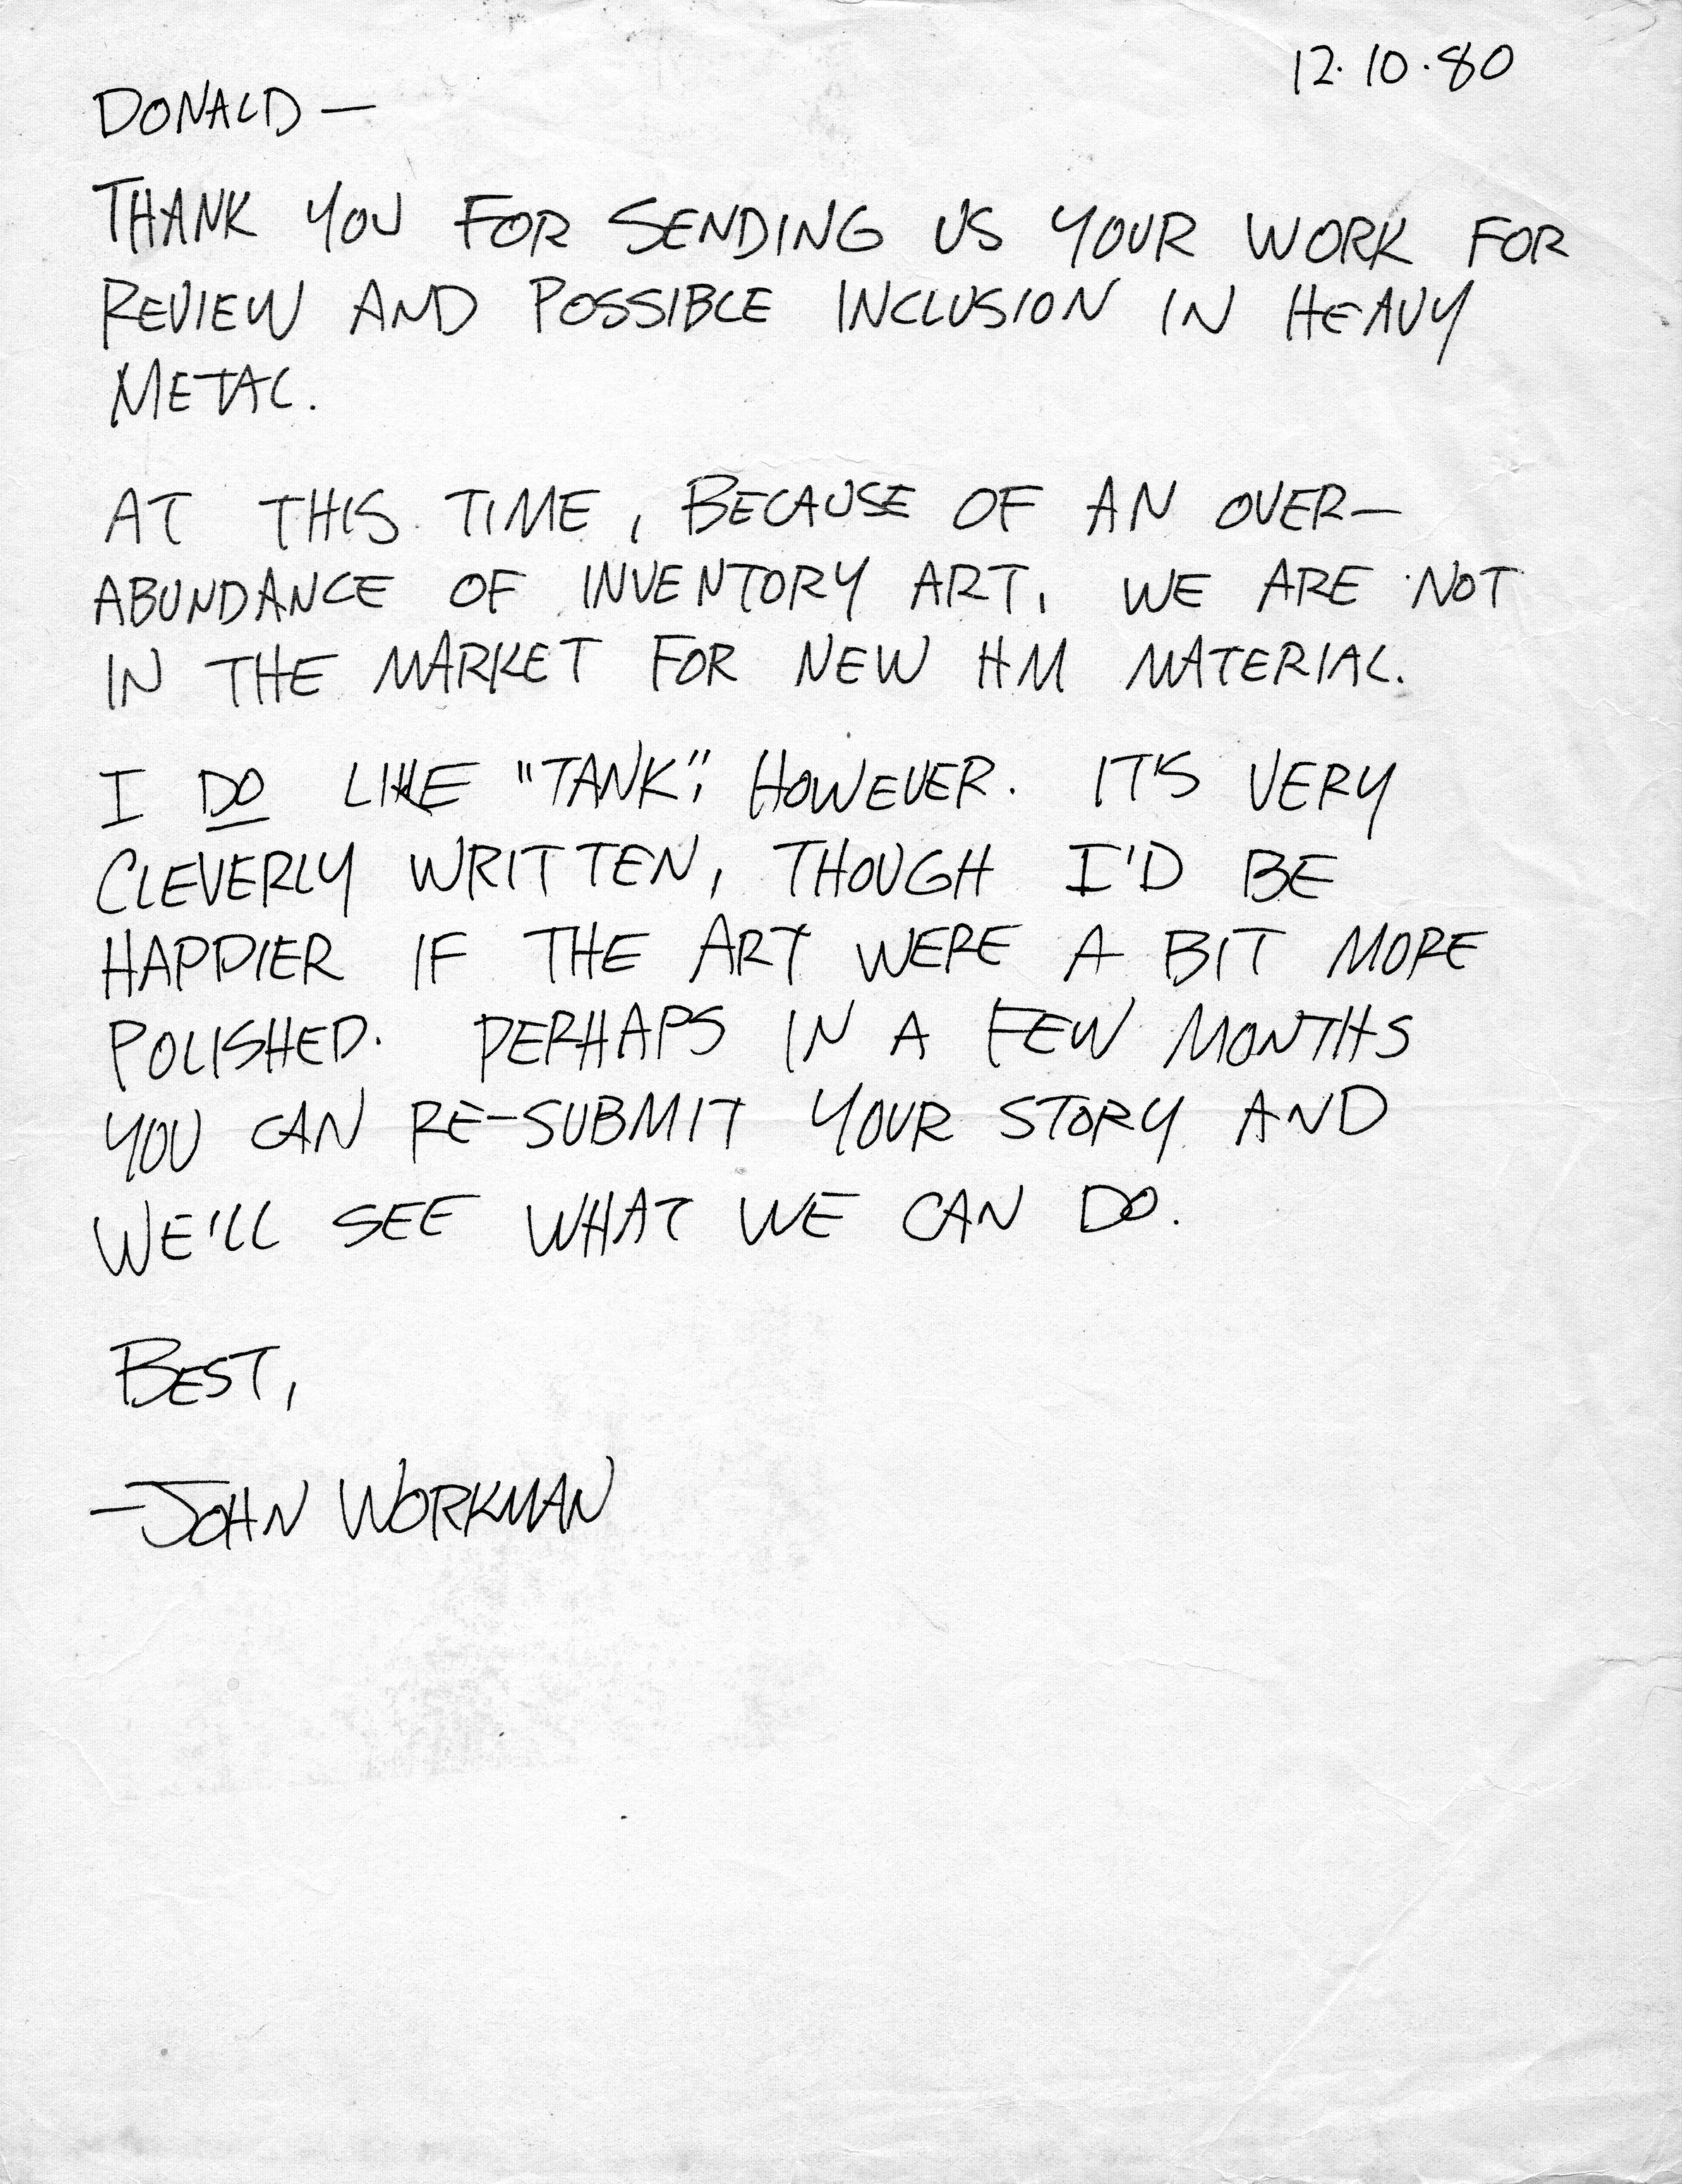 12·10·80
DONALD—
THANK YOU FOR SENDING US YOUR WORK FOR
REVIEW AND POSSIBLE INCLUSION IN HEAVY
METAL.
AT THIS TIME, BECAUSE OF AN OVER-
ABUNDANCE OF INVENTORY ART, WE ARE NOT
IN THE MARKET FOR NEW HM MATERIAL.
I DO LIKE "TANK", HOWEVER. IT'S VERY
CLEVERLY WRITTEN, THOUGH I'D BE
HAPPIER IF THE ART WERE A BIT MORE
POLISHED. PERHAPS IN A FEW MONTHS
YOU CAN RE-SUBMIT YOUR STORY AND
WE'LL SEE WHAT WE CAN DO.
BEST,
—JOHN WORKMAN